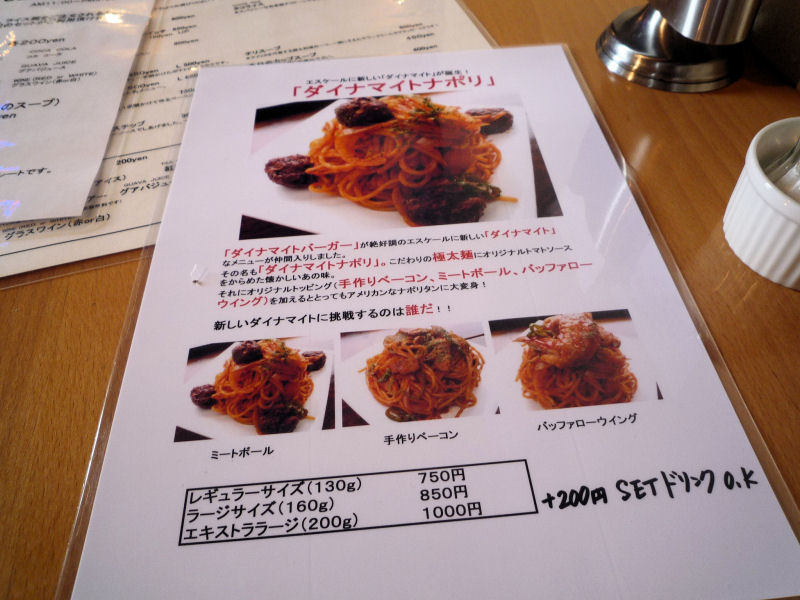 エスケールに新しい「ダイナマイト」が誕生！
「ダイナマイトナポリ」
「ダイナマイトバーガー」が絶好調のエスケールに新しい「ダイナマイト」
なメニューが仲間入りしました。
その名も「ダイナマイトナポリ」。こだわりの極太麺にオリジナルトマトソース
をからめた懐かしいあの味。
それにオリジナルトッピング(手作りベーコン、ミートボール、バッファロー
ウイング)を加えるととってもアメリカンなナポリタンに大変身！
新しいダイナマイトに挑戦するのは誰だ！！
ミートボール
手作りベーコン
バッファローウイング
レギュラーサイズ(130g) 750円
ラージサイズ(160g) 850円
エキストララージ(200g) 1000円
+200円 SETドリンク O.K
+200yen
COCA COLA
コカ コーラ
GUAVA JUICE
グアバジュース
WINE(RED or WHITE)
グラスワイン(赤or白)
のスープ)
yen
ートです。
200yen
アイス)
GUAVA JUICE
グアバジュ
WINE(RED or WHITE)
グラスワイン(赤or白)